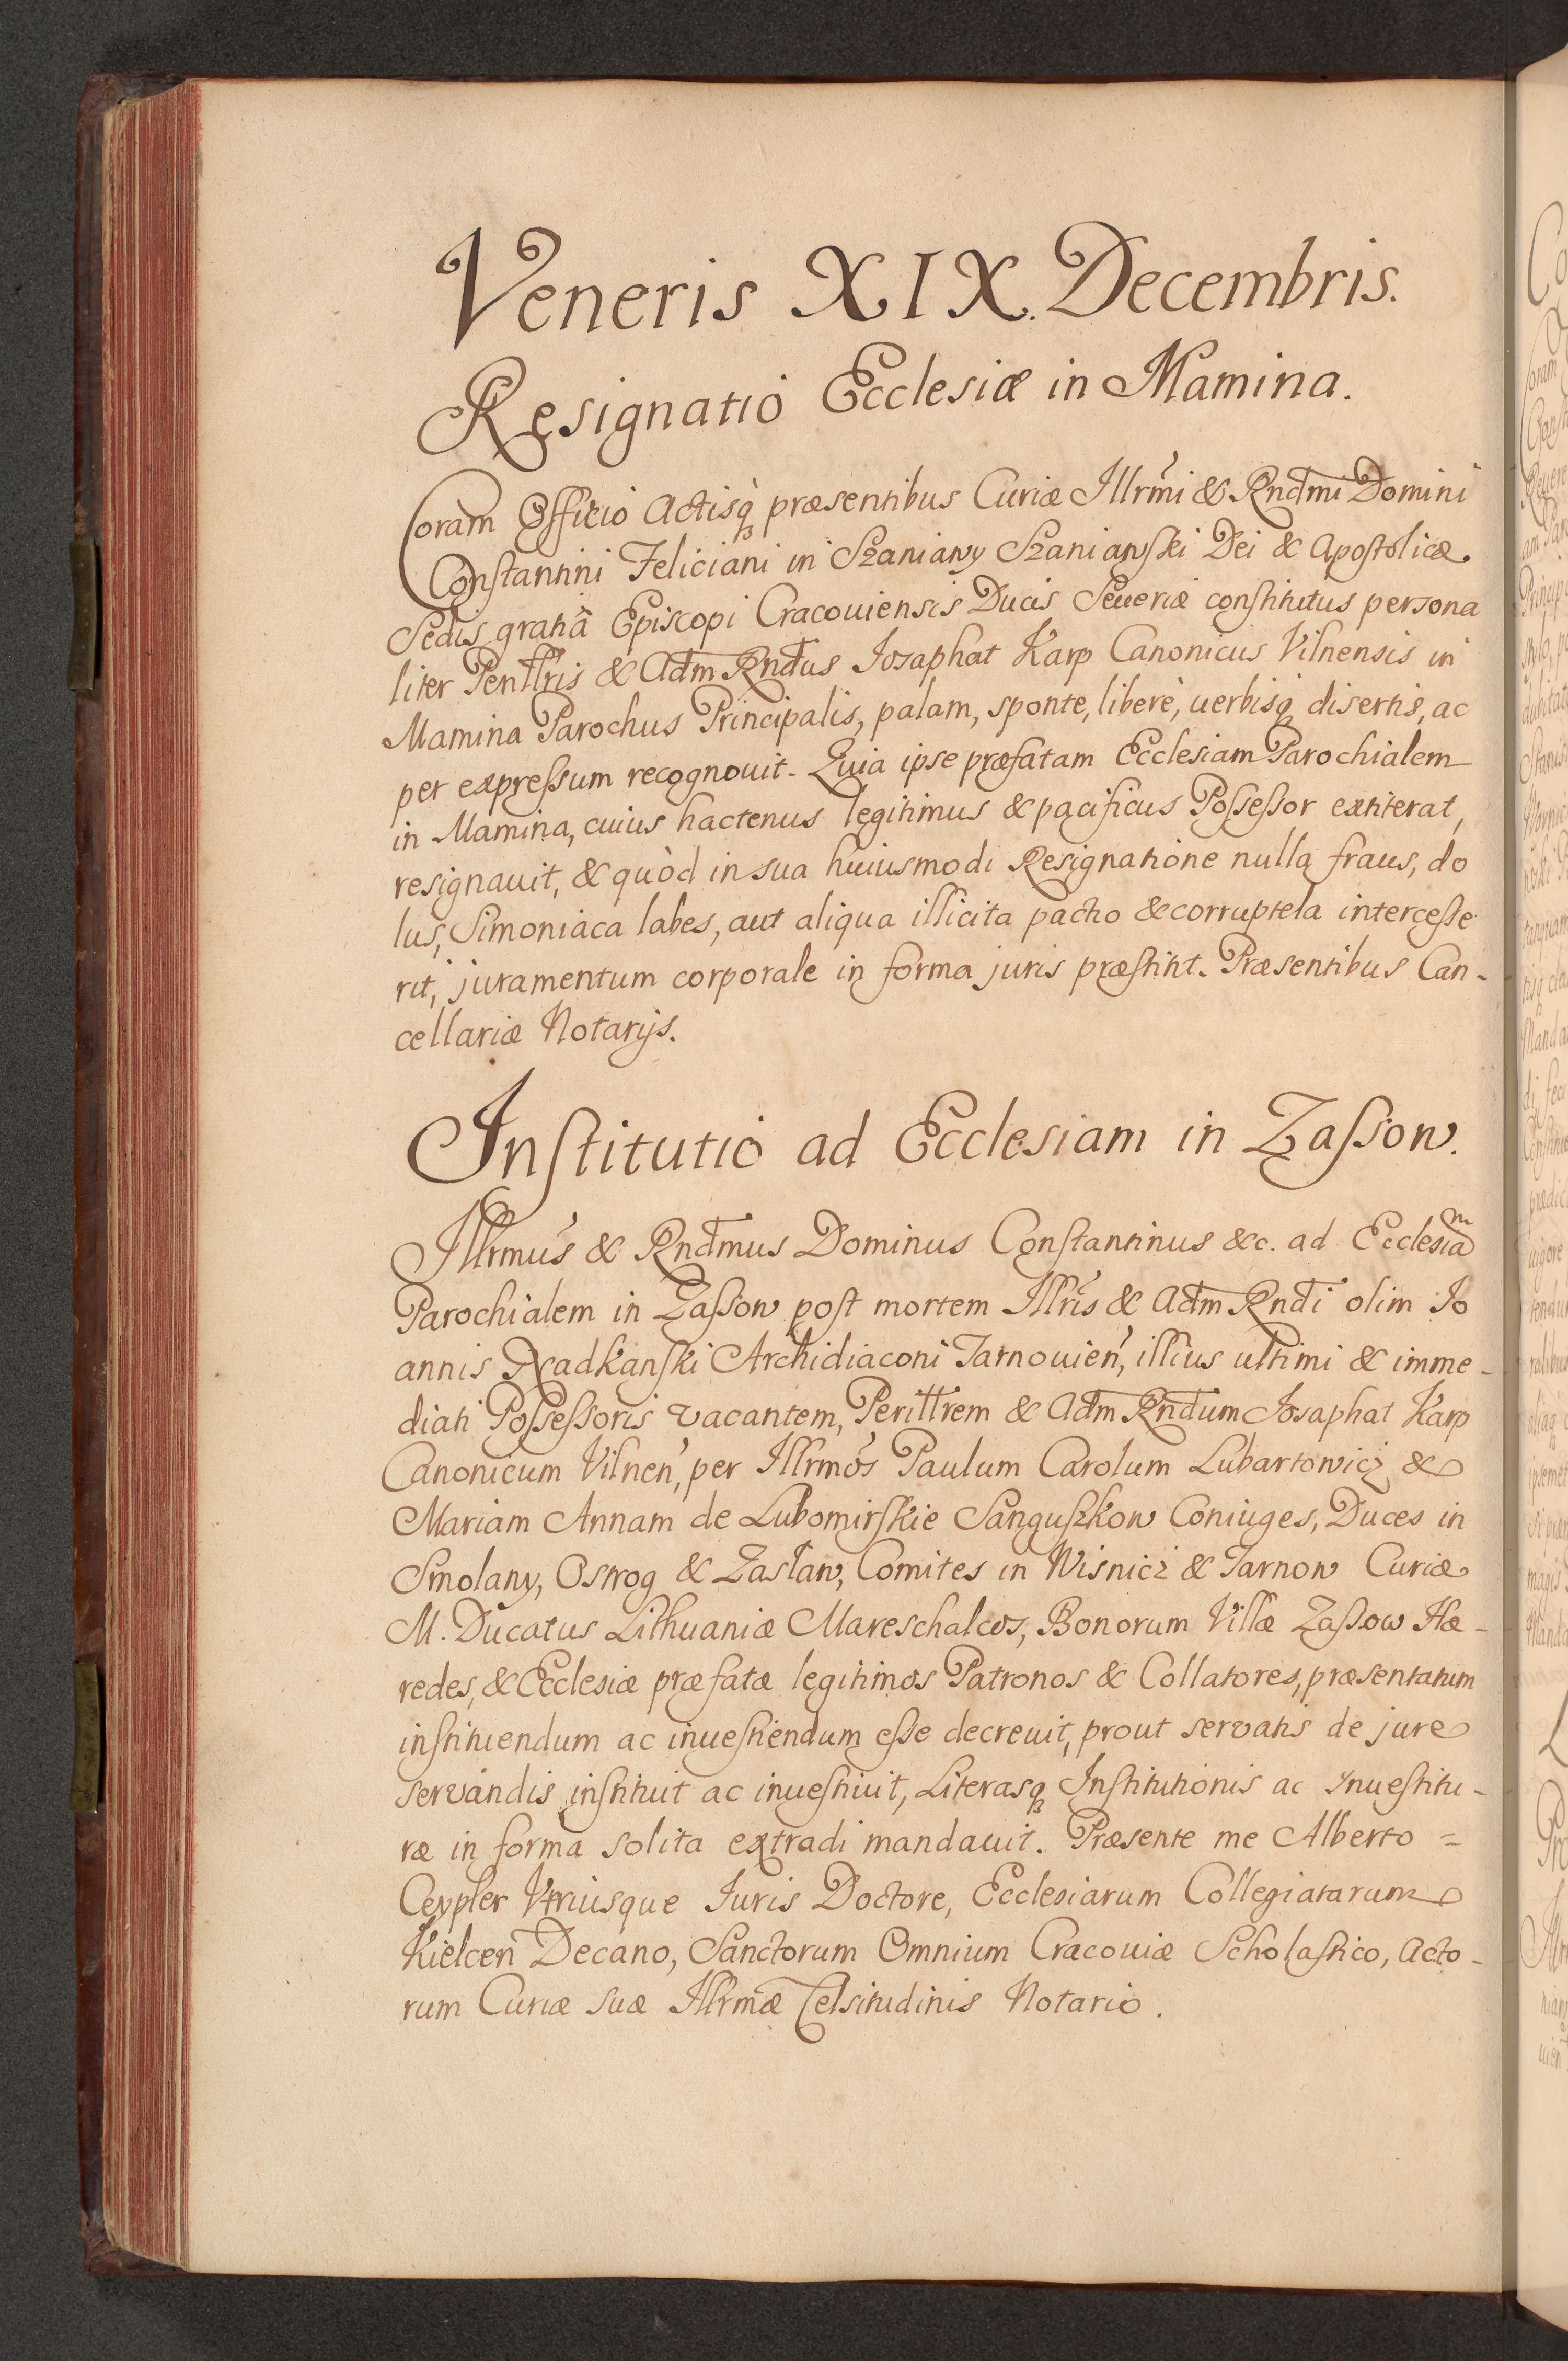 Veneris XIX. Decembris.
Resignatio Ecclesiæ in Mamina.
Coram Officio Actisq́ præsentibus Curiæ Illrm̃i & Rndm̃i Domini
Constantini Feliciani in Szaniawy Szaniawski Dei & Apostolicæ
Sedis gratiâ Episcopi Cracouiensis Ducis Seueriæ constitutus persona
liter Perillris & Adm Rndus Iosaphat Karp Canonicus Vilnensis in
Mamina Parochus Principalis, palam, sponte, liberè, uerbisq disertis, ac
per expressum recognouit. Quia ipse præfatam Ecclesiam Parochialem
in Mamina, cuius hactenus legitimus & pacificus Possessor extiterat,
resignauit, & quòd in sua huiusmodi Resignatione nulla fraus, do
lus, Simoniaca labes, aut aliqua illicita pactio & corruptela intercesse
rit, juramentum corporale in forma juris præstitit. Præsentibus Can-
cellariæ Notarijs.
Institutio ad Ecclesiam in Zasson.
Illrmus & Rndmus Dominus Constantinus &c. ad Ecclesiam
Parochialem in Zasson post mortem Illris & Adm Rndi olim Io
annis Radkanski Archidiaconi Tarnouień, illius ultimi & imme-
diati Possessoris vacantem, Perillrem & Adm Rndum Iosaphat Karp
Canonicum Vilneń, per Illrmos Paulum Carolum Lubartowicz &
Mariam Annam de Lubomirskie Sanguszkow Coniuges, Duces in
Smolany, Ostrog & Zasław, Comites in Wisnicz & Tarnow Curiæ
M. Ducatus Lithuaniæ Mareschalcos, Bonorum Villæ Zassow Hæ-
redes, & Ecclesiæ præfatæ legitimos Patronos & Collatores, præsentatum
instituendum ac inuestiendum esse decreuit, prout servatis de jure
servandis instituit ac inuestiuit, Literasq Institutionis ac Inuestitu-
ræ in forma solita extradi mandauit. Præsente me Alberto =
Ceypler Vtriusque Iuris Doctore, Ecclesiarum Collegiatarum
Kielceń Decano, Sanctorum Omnium Cracouiæ Scholastico, Acto-
rum Curiæ suæ Illrmæ Celsitudinis Notario.